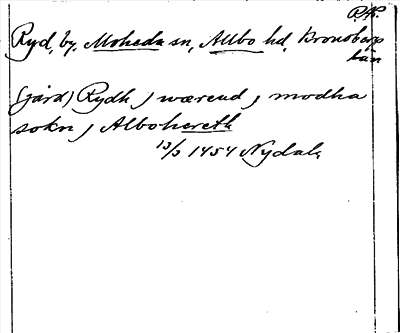 P.A.
Ryd, by, Moheda sn, Allbo hd, Kronobergs
län
(gård) Rydh j wærend j modha
sokn j Albohereth
13/5 1454 Nydala